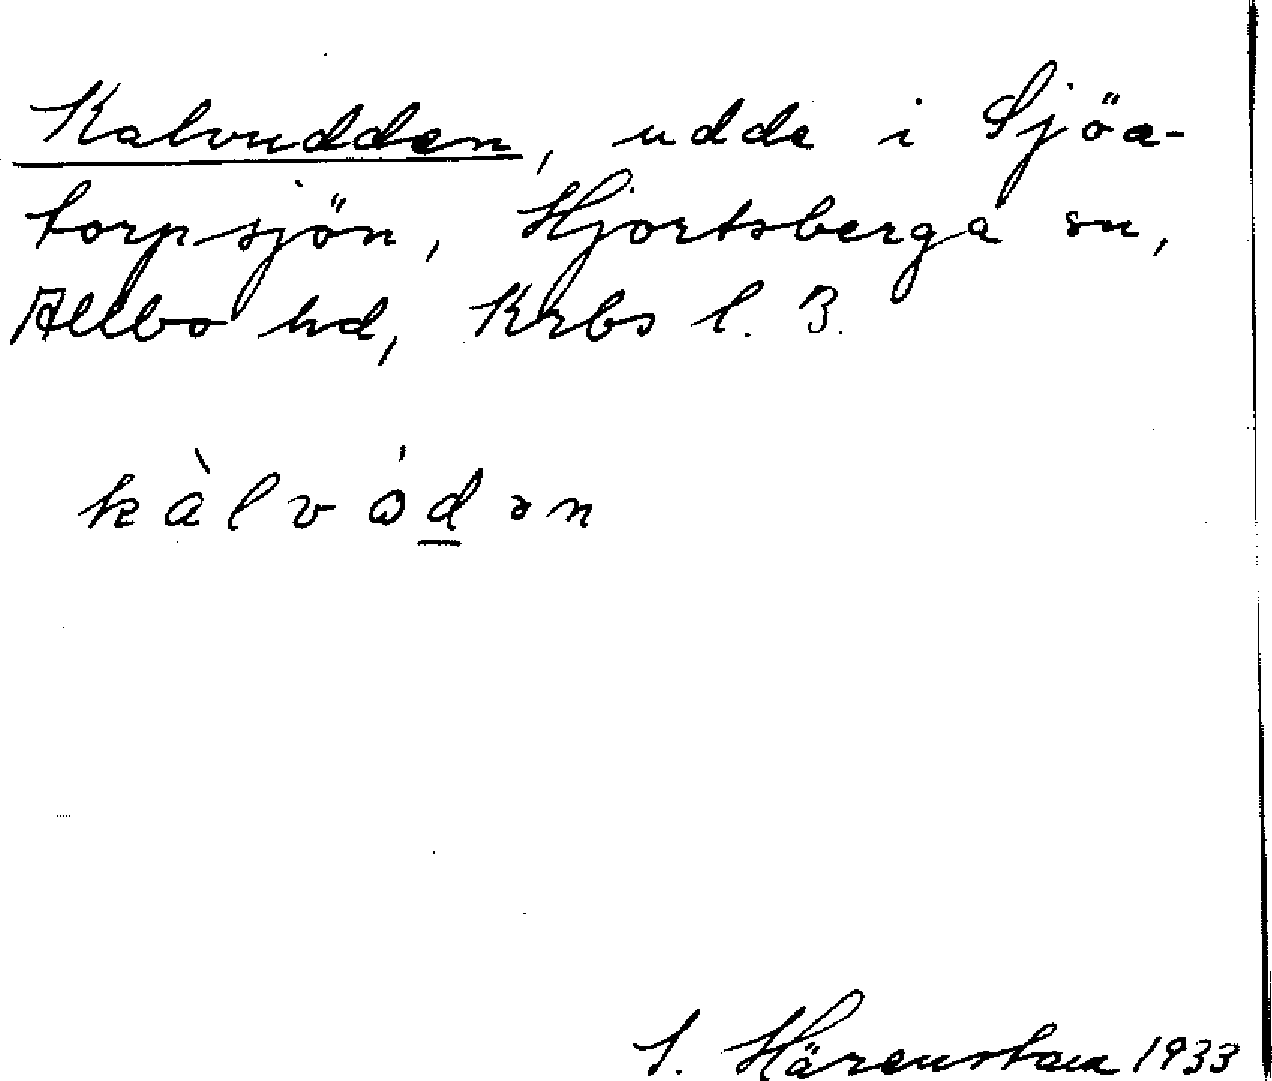 Kalvudden, udde i Sjöa-
torpsjön, Hjortsberga sn,
Allbo hd, Krbs l. 3.
kàlvȯd̲ən
S. Härenstam 1933